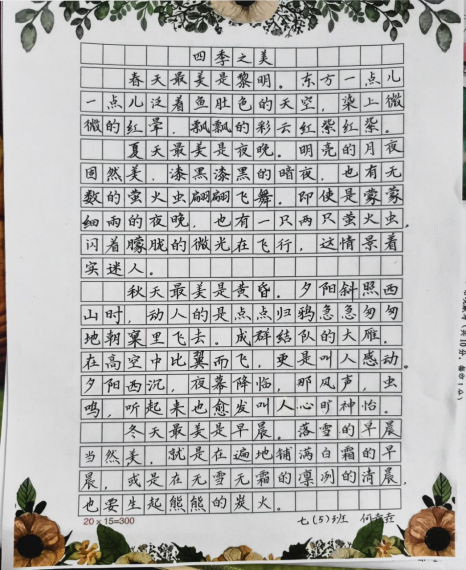 四季之美
春天最美是黎明。东方一点儿
一点儿泛着鱼肚色的天空，染上微
微的红晕，飘飘的彩云红紫红紫。
夏天最美是夜晚。明亮的月夜
固然美，漆黑漆黑的暗夜，也有无
数的萤火虫翩翩飞舞。即使是蒙蒙
细雨的夜晚，也有一只两只萤火虫，
闪着朦胧的微光在飞行，这情景着
实迷人。
秋天最美是黄昏。夕阳斜照西
山时，动人的是点点归鸦急急匆匆
地朝窠里飞去。成群结队的大雁，
在高空中比翼而飞，更是叫人感动。
夕阳西沉，夜幕降临，那风声，虫
鸣，听起来也愈发叫人心旷神怡。
冬天最美是早晨。落雪的早晨
当然美，就是在遍地铺满白霜的早
晨，或是在无雪无霜的凛冽的清晨，
也要生起熊熊的炭火。
20×15=300 七（5）班 何